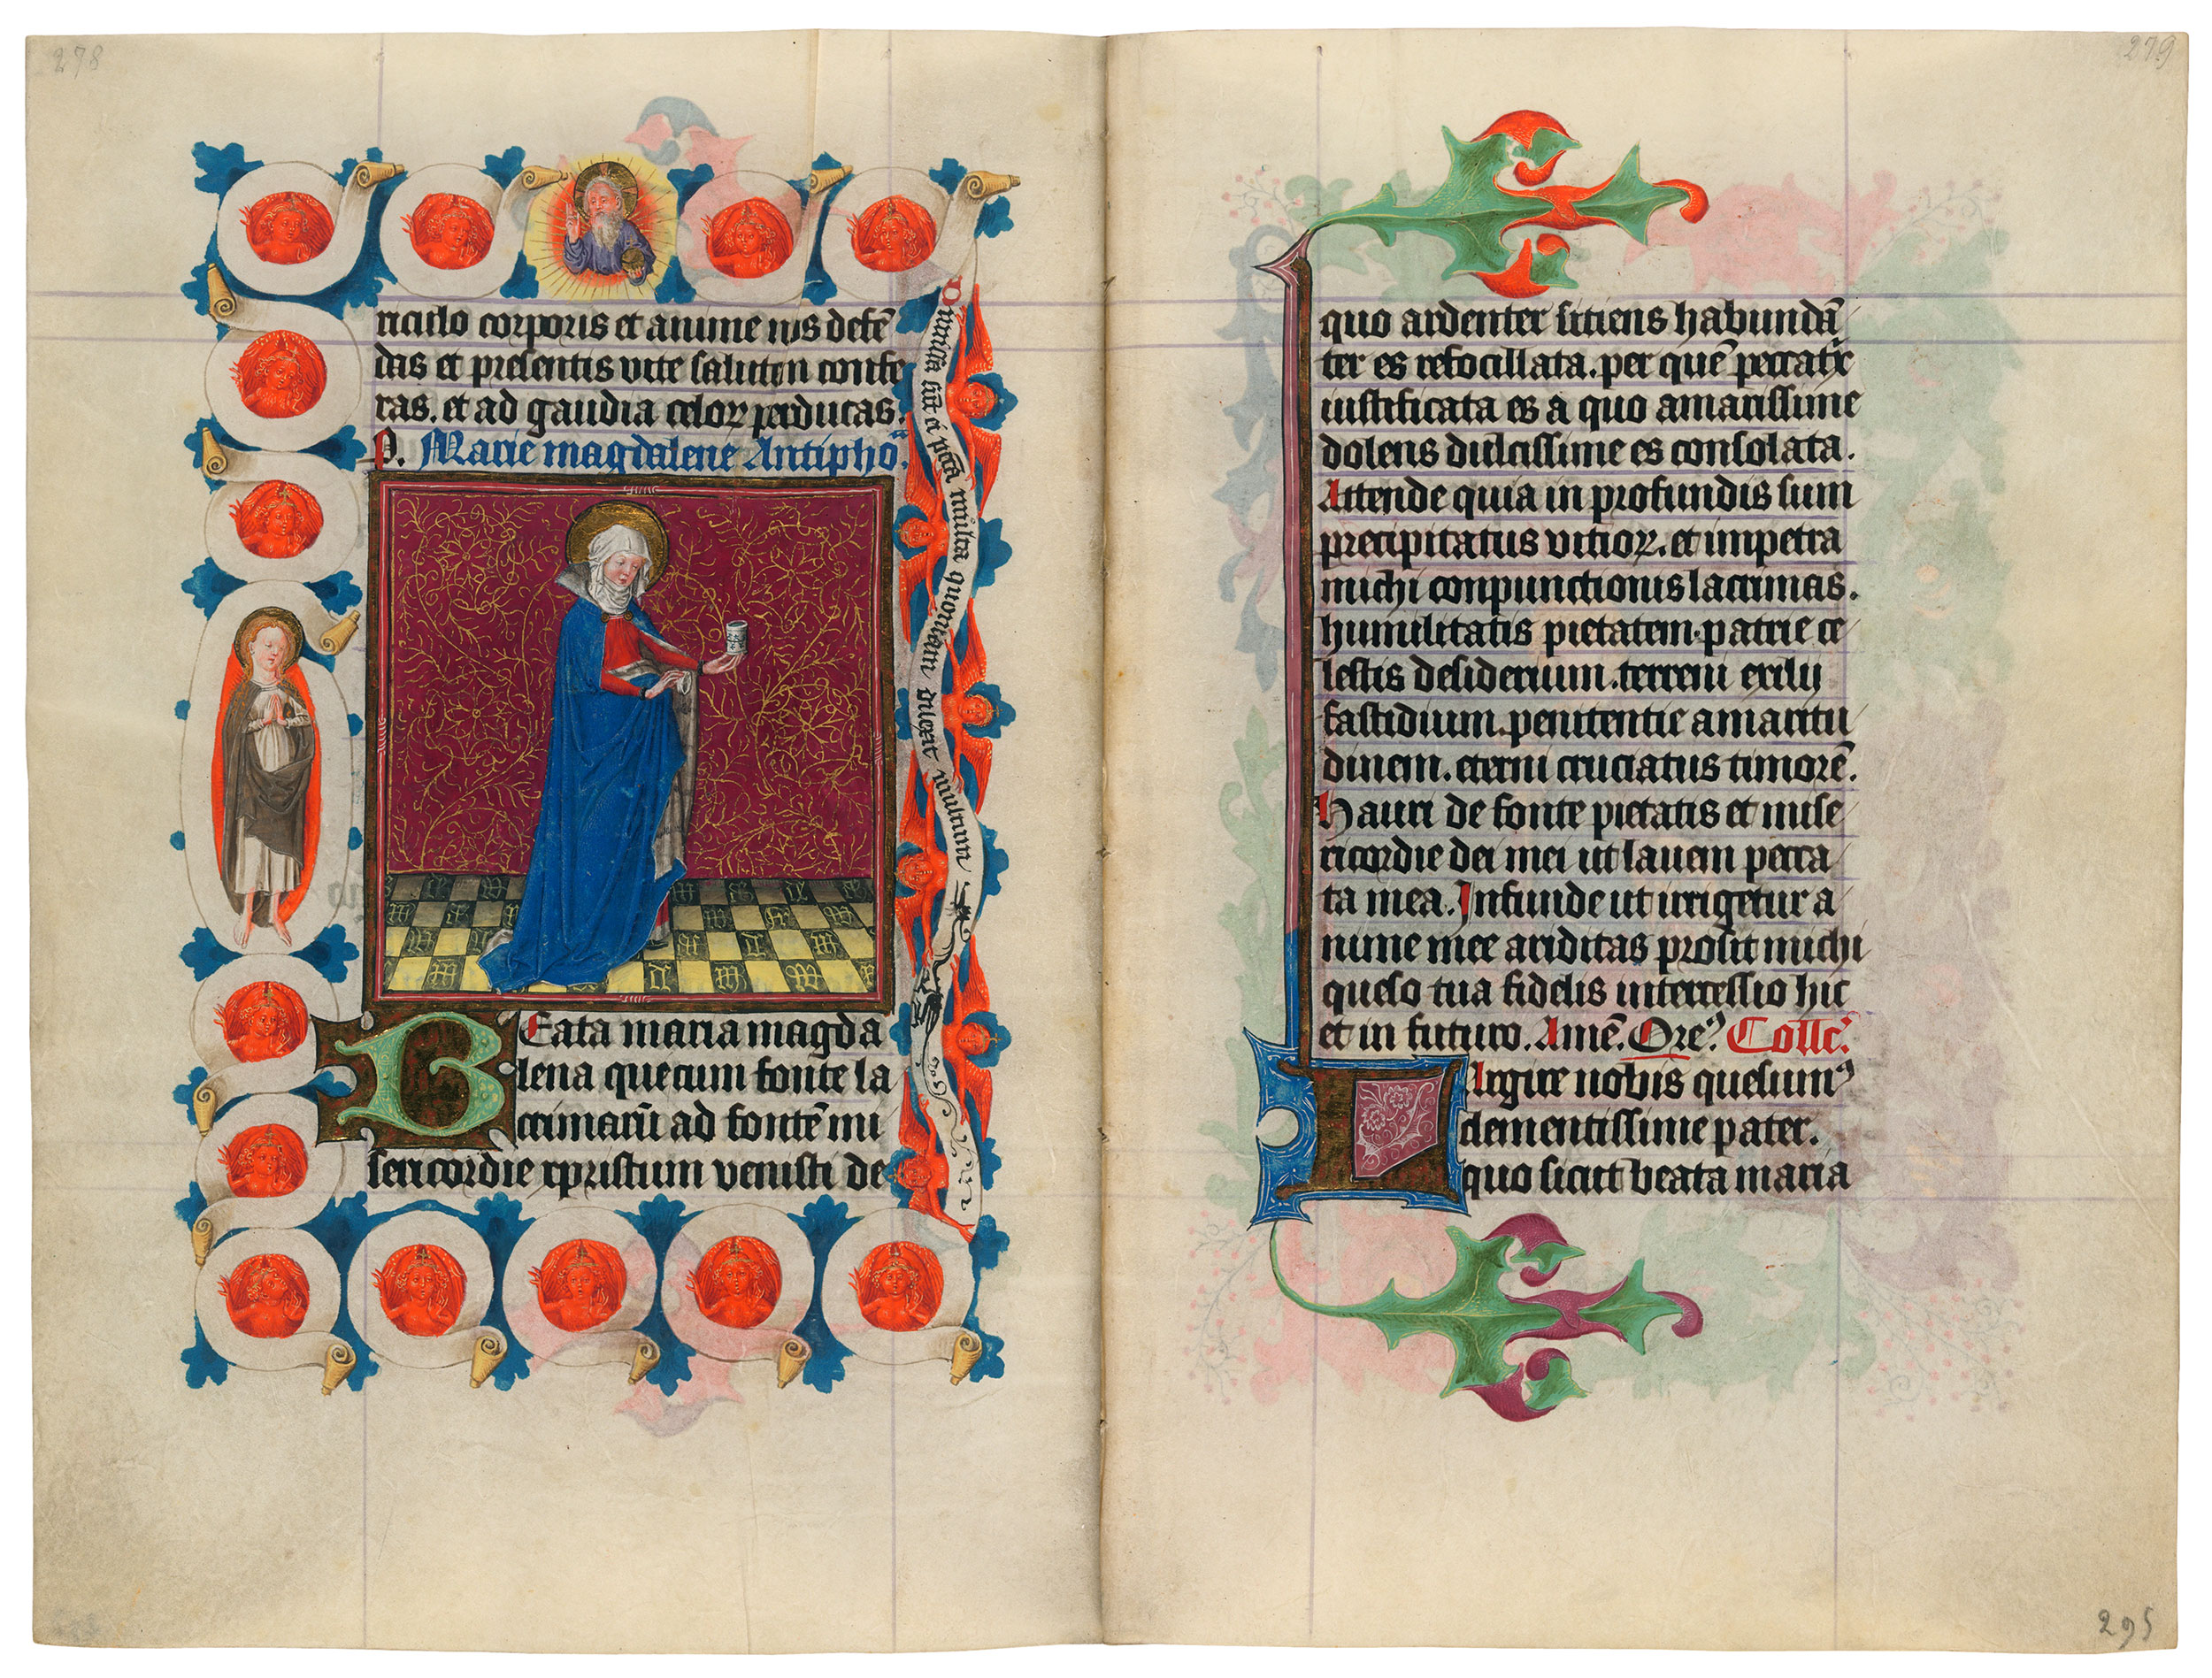 278
riculo corporis et anime n̄os defē
das et presentis vite salutem confe
ras. et ad gaudia celoꝝ perducas.
S. Marie magdalene Antipho.ᵃ
Dimissa sūt ei pctā multa quoniam dilexit multum
Beata maria magda
lena que cum fonte la
crimarū ad fontē mi
sericordie xpristum venisti de
279
quo ardenter sitiens habundā
ter es refocillata. per quē peccatͥx
iustificata es a quo amarissime
dolens dulcissime es consolata.
Attende quia in profundis sum
precipitatus vitioꝝ. et impetra
michi conpunctionis lacrimas.
humilitatis pietatem. patrie ce
lestis desiderium. terreni exilij
fastidium. penitentie amaritu
dinem. eterni cruciatus timorē.
Hauri de fonte pietatis et mise
ricordie dei mei ut lauem pecca
ta mea. Infunde ut irrigetur a
nime mee ariditas prosit michi
queso tua fidelis intercessio hic
et in futuro. Amē. Ore⁹. Collc̄.
Largire nobis quesum⁹
clementissime pater.
quo sicut beata maria
295